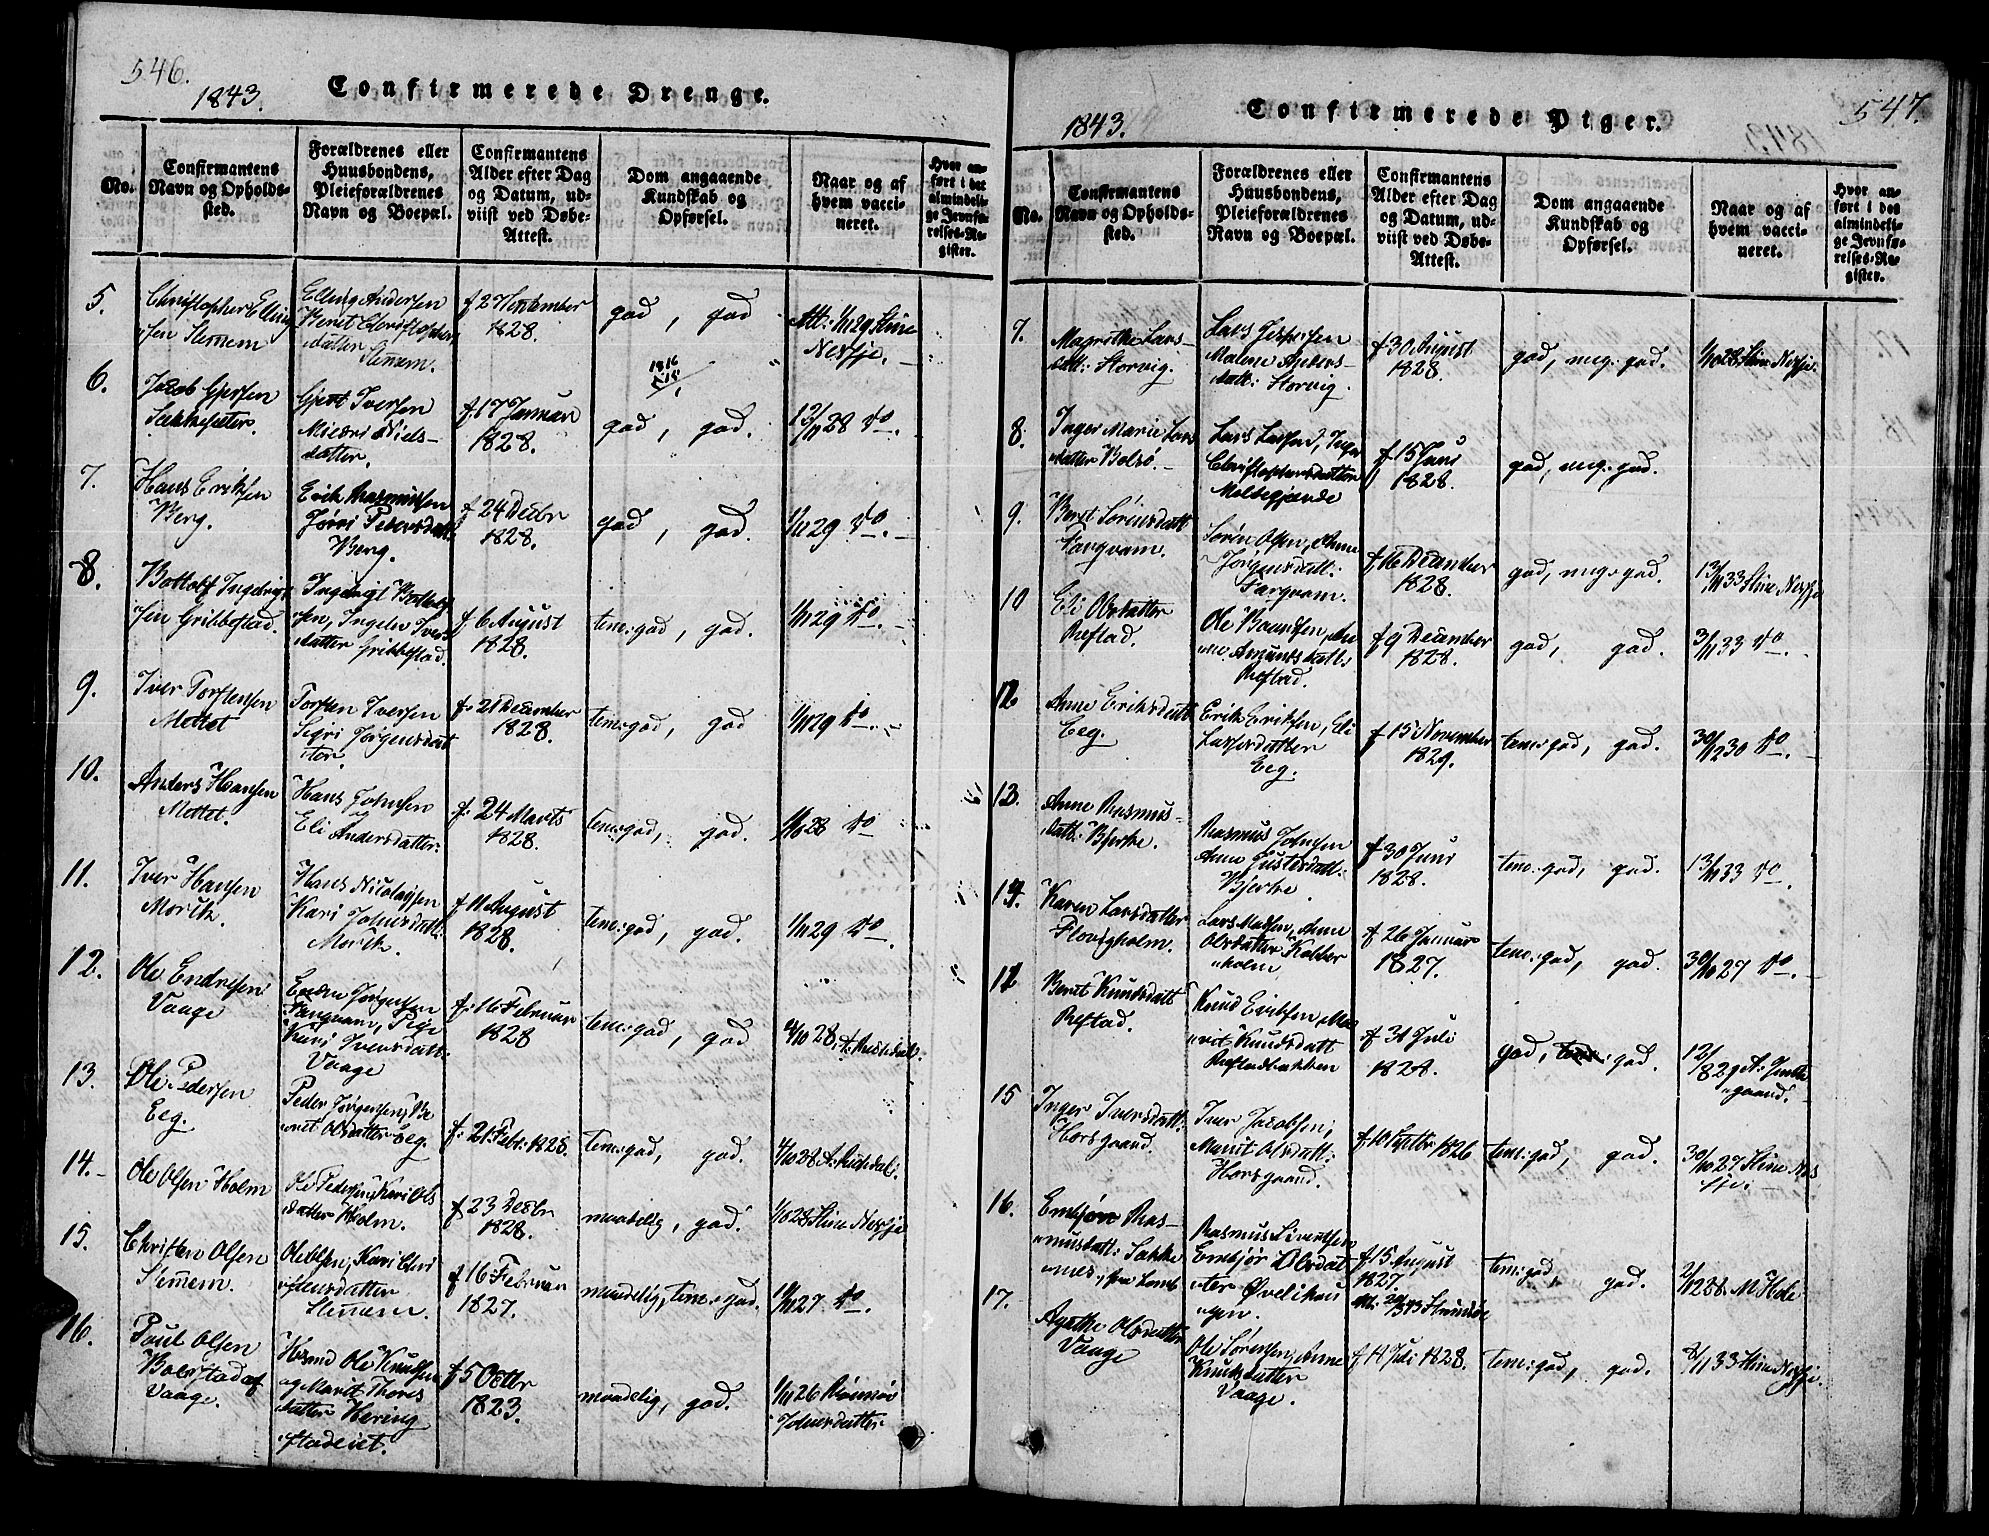 546.
1843.
Confirmerede Drenge.
No.
Confirmantens
Navn og Opholds-
sted.
Forældrenes eller
Huusbondens,
Pleieforældrenes
Navn og Boepæl.
Confirmantens
Alder efter Dag
og Datum, ud-
viist ved Døbe-
Attest.
Dom angaaende
Kundskab og
Opførsel.
Naar og af
hvem vacci-
neret.
Hvor an-
ført i det
almindeli-
ge Jevnfø-
relses-Re-
gister.
5.
Christopher Elling
sen Stemem
Elling Andersen
Beret Christopher
datter
Stemem.
f 27 September
1828.
god, god
Att: 1/11 29 Stine
Nesje.
6.
Jacob Gjertsen
Sekkesæter.
Gjert Iversen
Niels-
datter.
f. 17 Januar
1828.
god, god.
12/11 28 do.
7.
Hans Eriksen
Berg.
Erik Rasmussen
Jørri Pedersdatt:
Berg.
f 24 Decbr
1828.
god, god.
1/11 29 do.
8.
Bottolf Ingebrigt
sen Gribbestad.
Ingebrigt Bottolf
sen, Iver
datter Gribbestad.
f 6 August
1828.
tem: god, god.
1/11 29 do.
9.
Iver Torstensen
Mottet
Torsten Iversen
Sigri Jørgensdat
ter.
f. 21 December
1828.
tem: god, god
1/11 29 do.
10.
Anders Hansen
Mottet.
Hans Johnsen
og
Eli Andersdatter.
f. 24 Marts
1828.
tem: god, god.
1/10 28 do
11.
Iver Hansen
Morik.
Hans Nicolaysen
Kari Johnsdatt:
Morik.
f 11 August
1828.
tem: god, god.
1/11 29 do.
12.
Ole Endresen
Vaage
Endre Jørgensen
Tangvam, Pige
Kari Iversdatt:
Vaage
f. 16 Februar
1828
tem: god, god
4/10 28. A. Rusedal.
13.
Ole Pedersen
Eeg.
Peder Jørgensen, Be
ret Olsdatter Eeg.
f. 21 Febr: 1828.
tem: god, god.
4/10 28 A. Rusedal.
14.
Ole Olsen Holm
Ole Pedersen, Kari Ols
datter Holm.
f 23 Decbr
1828.
maadelig, god.
1/10 28 Stine Nesje
15.
Christen Olsen
Stemem.
Ole Olsen, Kari Chri
stensdatter
Stemem.
f 16 Februar
1827.
maadelig, tem: god.
27 do.
16.
Paul Olsen
Bolstad af
Vaage.
Hosmd Ole Knudsen
og Marit Thores
datter Hering
stadeiet.
f 5 Octbr
1823.
maadelig, god.
1/11 26
Johnsdatter.
547.
1843.
Confirmerede Piger.
No.
Confirmantens
Navn og Opholds-
sted.
Forældrenes eller
Huusbondens,
Pleieforældrenes
Navn og Boepæl.
Confirmantens
Alder efter Dag
og Datum, ud-
viist ved Døbe-
Attest.
Dom angaaende
Kundskab og
Opførsel.
Naar og af
hvem vacci-
neret.
Hvor an-
ført i det
almindeli-
ge Jevnfø-
relses-Re-
gister.
7.
Magrethe Lars-
datt: Storvig.
Lars Jespersen
Malene Anders-
datt: Storvig.
f 30 August
1828.
god, meg: god.
1/10 28 Stine Nesje.
8.
Inger Marie Lars
datter Bolsø.
Lars Larsen, Inger
Christophersdatter
Moldegjærde
f 15 Juni
1828.
god, meg: god.
9.
Beret Sørensdatt
Tangvam.
Søren Olsen, Anne
Jørgensdatt:
Tangvam.
f. 16 December
1828.
god, meg: god.
13/11 33 Stine Nesje
10
Eli Olsdatter
Refstad.
Ole Baardsen, An
ne Amundsdatt:
Refstad.
f 9 December
1828.
god, god.
3/11 33 do.
12
Anne Eriksdatt
Eeg.
Erik Eriksen, Eli
Larsesdatter
Eeg.
f 15 November
1829.
tem: god, god.
30/12 30 do.
13.
Anne Rasmus-
datt: Bjerke.
Rasmus Johnsen
Anne Gustesdatt:
Bjerke
f 30 Juni
1828.
tem: god, god.
13/11 33 do.
14.
Karen Larsdatter
Flovigholm.
Lars Madsen, Anne
Olsdatter Kobber
holm
f 26 Januar
1827.
tem: god, god.
30/10 27 do.
Beret Knudsdatt
Refstad.
Knud Eriksen, Ma
rit Knudsdatt
Refstadbakken
f 31 Juli
1828.
god, god.
12/8 29 A.
gaard.
15
Inger Iversdatt:
Horsgaard.
Iver Jacobsen,
Marit Olsdatt:
Horsgaard.
f 10 Septbr 1826
tem: god, god.
30/10 27 Stine Nes
je.
16.
Embjør Ras-
musdatt: Sække
næs, fra Lomb
Rasmus Sivertsen
Embjør Olsdat
ter Øvelikou
gen.
f 15 August
1827
tem: god, god.
2/12 28. M Hole
17.
Agathe Olsdatter
Vaage
Ole Sørensen, Anne
Knudsdatter
Vaage.
f. 11 Juli 1828.
tem: god, god.
8/11 33 Stine Nesje.